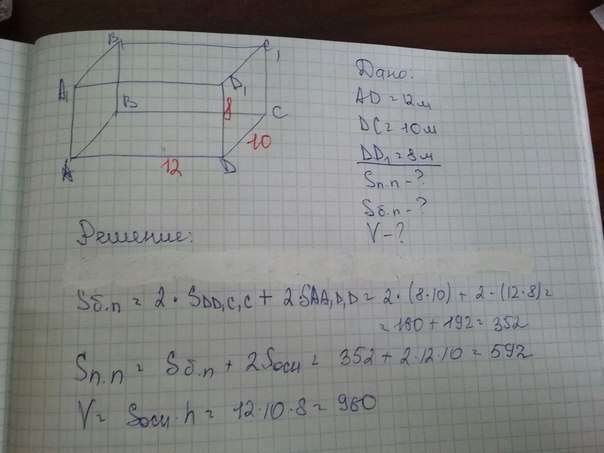 B1 C1
A1 D1
B 8 C
10
A 12 D
Дано:
AD = 12м
DC = 10м
DD1 = 8м
Sп.п - ?
Sб.п - ?
V - ?
Решение:
Sб.п = 2 · SDD1C1C + 2SAA1D1D = 2 · (8·10) + 2 · (12·8) =
= 160 + 192 = 352
Sп.п = Sб.п + 2Sосн = 352 + 2·12·10 = 592
V = Sосн · h = 12·10·8 = 960